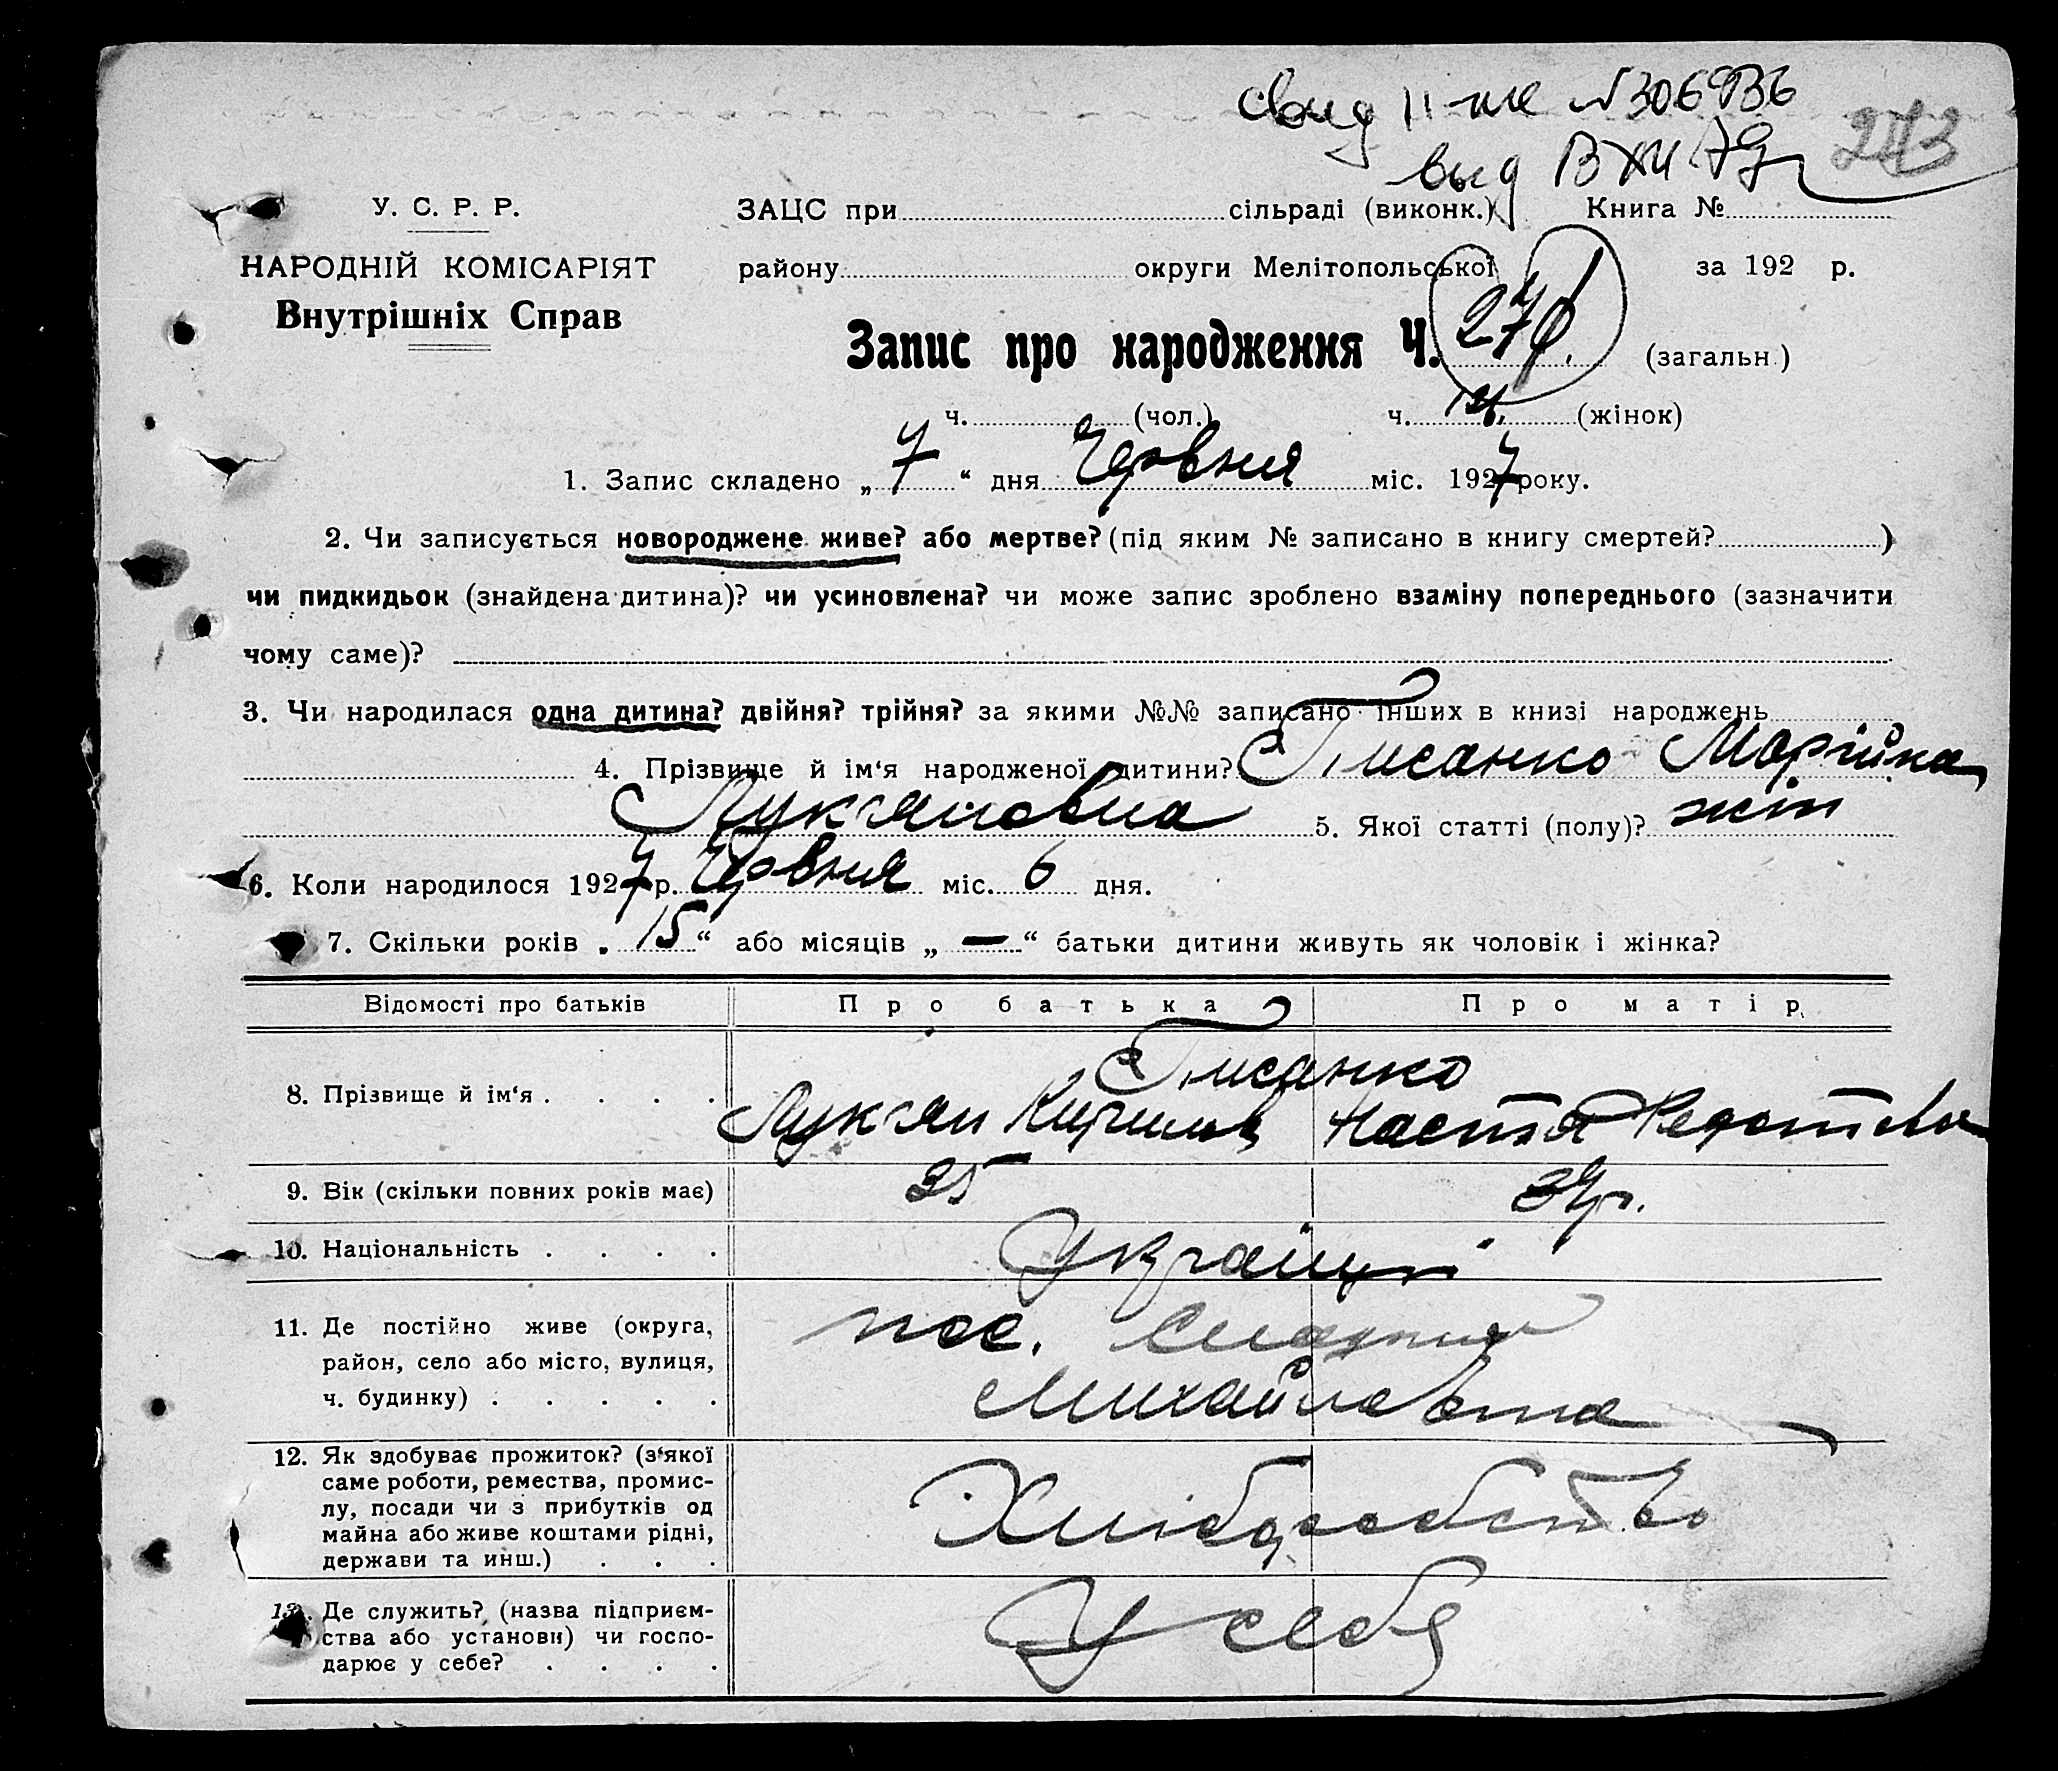 Свид II-ЖС №306936
выд
273
У. С. Р. Р.
НАРОДНІЙ КОМІСАРІЯТ
Внутрішніх Справ
ЗАЦС при сільраді (виконк.) Книга №
району округи Мелітопольської за 192 р.
Запис про народження Ч. 27 (загальн.)
ч. (чол.) ч. (жінок)
1. Запис складено „7“ дня Червня міс. 1927 року.
2. Чи записується новороджене живе? або мертве? (під яким № записано в книгу смертей? )
чи пидкидьок (знайдена дитина)? чи усиновлена? чи може запис зроблено взаміну попереднього (зазначити
чому саме)?
3. Чи народилася одна дитина? двійня? трійня? за якими №№ записано інших в книзі народжень
4. Прізвище й ім‘я народженої дитини? Гисанко Марійка
Лукʼяновна 5. Якої статті (полу)? жін
6. Коли народилося 1927 р. Червня міс. 6 дня.
7. Скільки років „15“ або місяців „—“ батьки дитини живуть як чоловік і жінка?
Відомості про батьків Про батька Про матір
Гисанко
8. Прізвище й ім‘я . . . . Лукʼян Кирилов Настя Федотовна
9. Вік (скільки повних років має) 35
10. Національність . . . . Українці
11. Де постійно живе (округа,
район, село або місто, вулиця,
ч. будинку) . . . . .
пос.
Михайловка
12. Як здобуває прожиток? (з‘якої
саме роботи, ремества, промис-
лу, посади чи з прибутків од
майна або живе коштами рідні,
держави та инш.) . . .
Хліборобство
13. Де служить? (назва підприєм-
ства або установи) чи госпо-
дарює у себе? . . . .
У себя